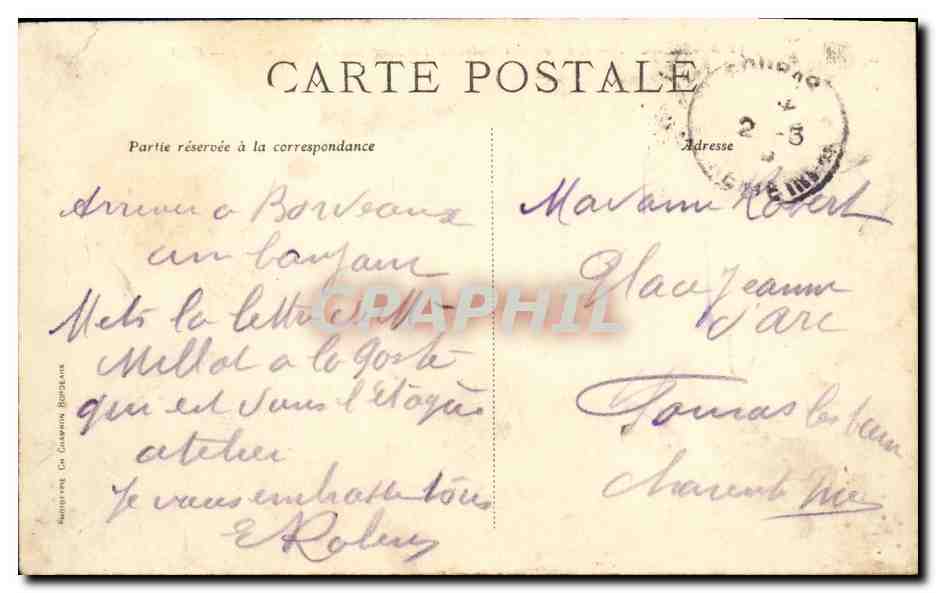 CARTE POSTALE
Partie réservée à la correspondance
Arriver a Bordeaux
un bonjour
Mets la lettre de Mr
Millot a la poste
qui est dans l'étagère
atelier
Je vous embrasse tous
E Robert
PHOTOTYPIE CH CHAMBON BORDEAUX
Adresse
Madame Robert
Place Jeanne
d'arc
Fouras les bains
charente Infre
2 -5
CPAPHIL